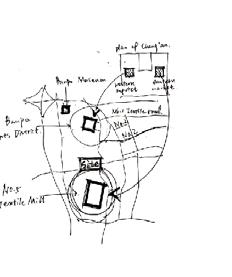 plan of Chang'an.
western
market
eastern
market
Banpo Museum
Banpo
District.
No.1 Textile road
No.2
No.2
Site
No.5
Textile Mill